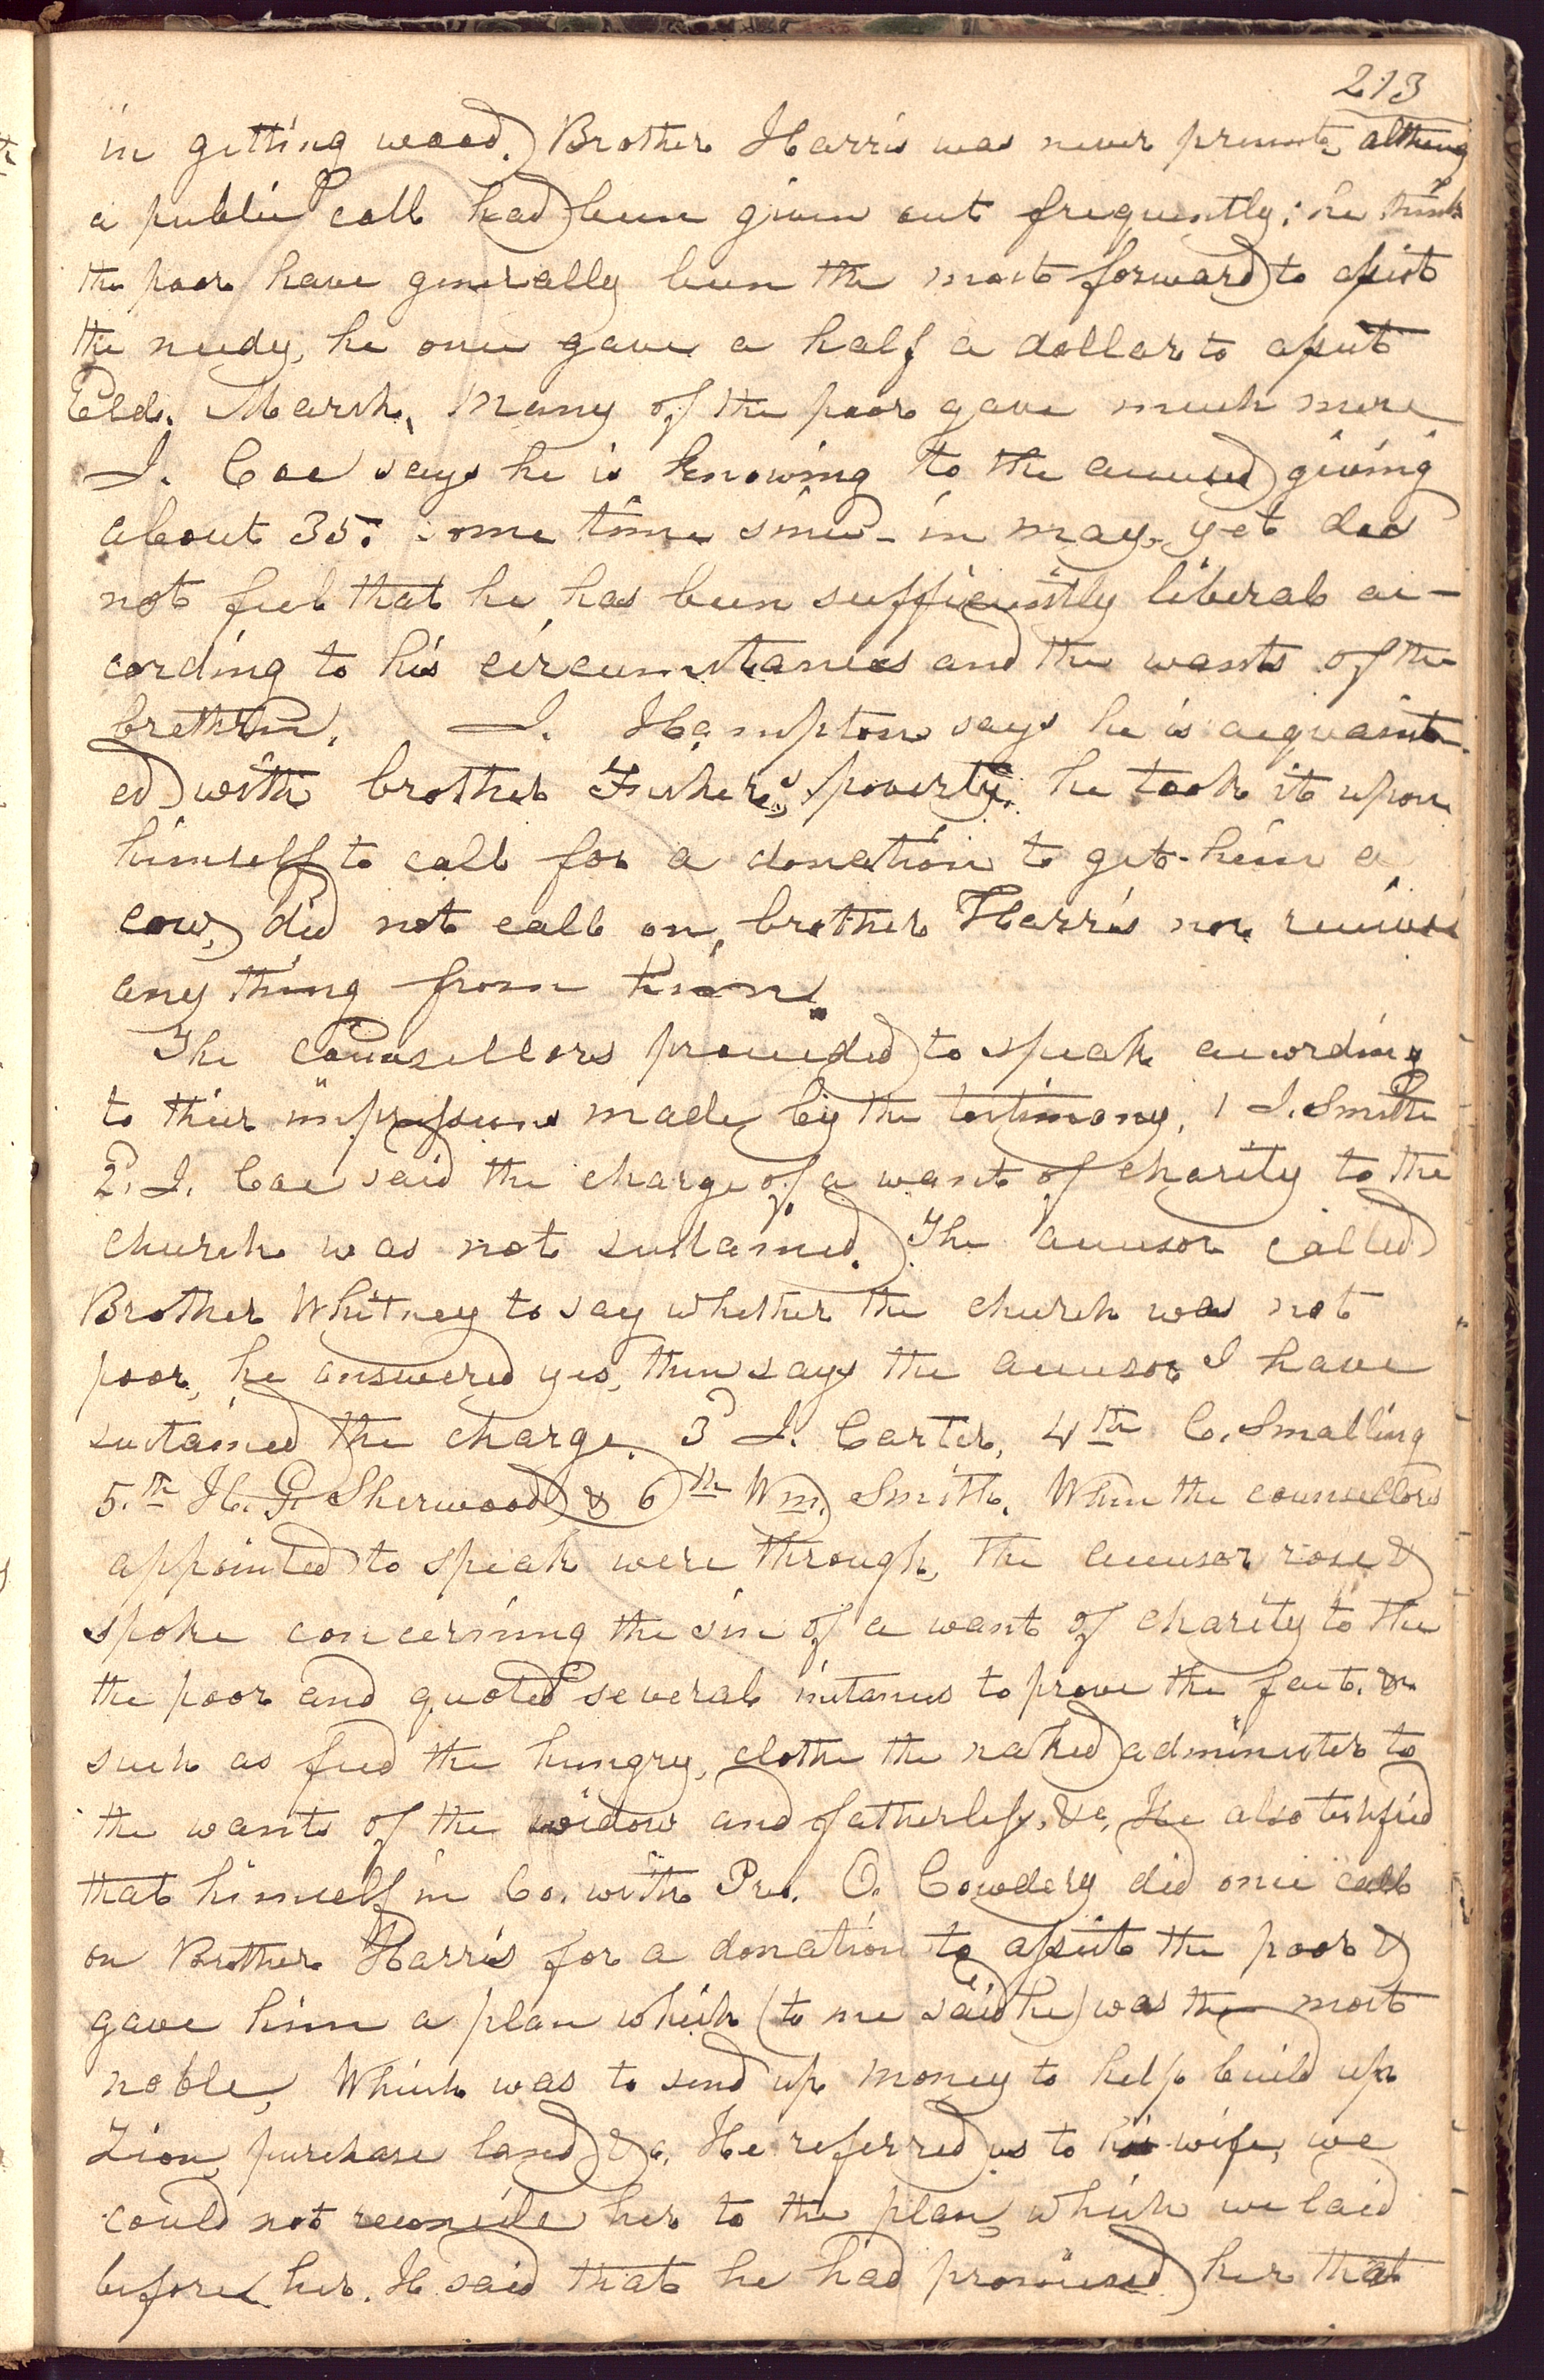 213
in getting wood. Brother Harris was never present although
a public call had been given out frequently; he think
the poor have generally been the most forward to assist
the needy, he once gave a half a dollar to assist
Eld. Marsh, Many of the poor gave much more
J. Coe says he is knowing to the accused giving
about 35. some time since in may, yet does
not feel that he has been sufficiently liberal ac-
cording to his circumstances and the wants of the
brethren. J. Hampton says he is acquaint-
ed with brother Fisher's poverty. he took it upon
himself to call for a donation to get him a
cow, did not call on, brother Harris nor received
any thing from him.
The counsellors proceeded to speak according
to their impressions made by the testimony, 1 J. Smith
2d. J. Coe said the charge of a want of charity to the
church was not sustained. The accuser called
Brother Whitney to say whether the church was not
poor, he answered yes, then says the accuser I have
sustained the charge. 3d J. Carter, 4th C. Smalling
5.th H. G. Sherwood & 6th Wm. Smith. When the counsellors
appointed to speak were through, the accuser rose &
spoke concerning the sin of a want of charity to the
the poor and quoted several instances to prove the fact.
such as feed the hungry, clothe the naked administer to
the wants of the widow and fatherless, &c, He also testified
that himself in Co. with Pres. O. Cowdery did once call
on Brother Harris for a donation to assist the poor &
gave him a plan which (to me said he) was the most
noble, Which was to send up money to help build up
Zion, purchase land &c, He referred us to his wife, we
could not reconcile her to the plan, which we laid
before her. H. said that he had promised her that